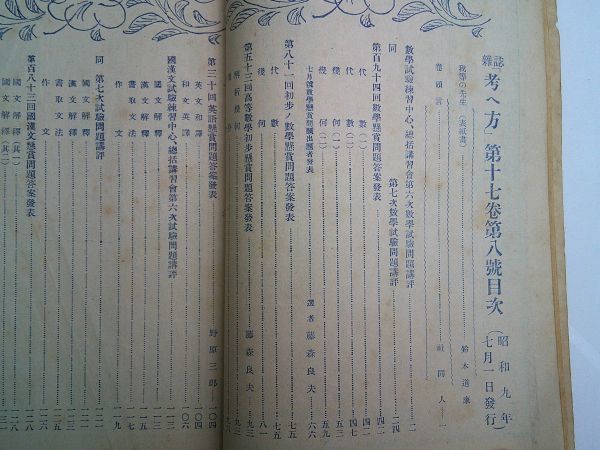 雜誌「考へ方」第十七卷第八號目次（昭和九年七月一日發行）
我等の先生（表紙畫）……鈴木道康
卷頭言……社同人…一
數學試驗練習中心、總括講習會第六次數學試驗問題講評……二
同 第七次數學試驗問題講評……二四
第百九十四回數學懸賞問題答案發表
代數（一）……四二
代數（二）……四七
幾何（一）……五三
幾何（二）……五九
七月號數學懸賞問題出題者發表……選者 藤森良夫…六六
第八十一回初步ノ數學懸賞問題答案發表……七五
代數……七五
幾何……八一
第五十三回高等數學初步懸賞問題答案發表……藤森良夫…九三
解析幾何……九三
第三十一回英語懸賞問題答案發表……野原三郎…一〇四
英文和譯……一〇四
和文英譯……一〇六
國漢文試驗練習中心、總括講習會第六次試驗問題講評
國文解釋……一一三
漢文解釋……一一五
書取文法……一一七
作文……一一九
同 第七次試驗問題講評
國文解釋……
漢文解釋……
書取文法……
作文……
第百八十三回國漢文懸賞問題答案發表
國文解釋（其一）……
國文解釋（其二）……